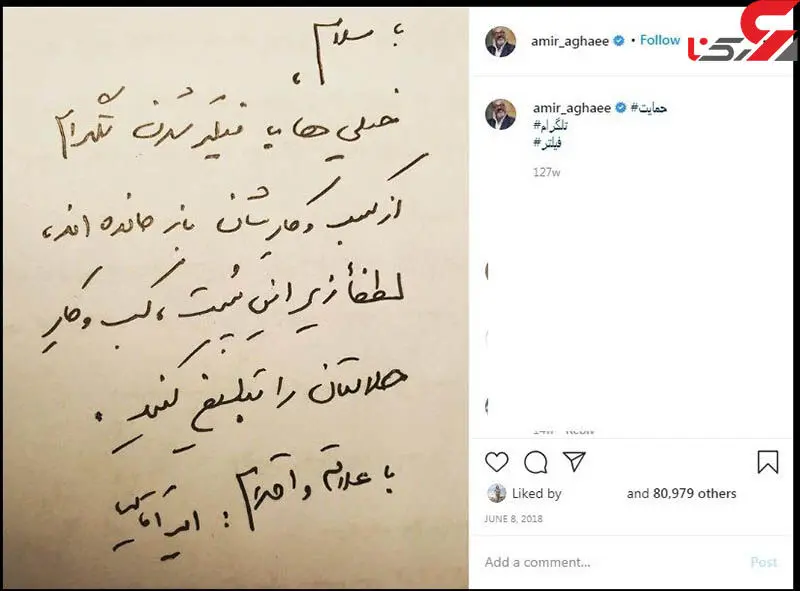 با سلام،
خیلی ها با فیلتر شدن تلگرام
از کسب و کارشان باز مانده اند،
لطفاً زیر این پست، کسب و کار
حلالتان را تبلیغ کنید.
با علاقه و احترام: امیر آقایی
amir_aghaee • Follow
رکنا
amir_aghaee #حمایت
#تلگرام
#فیلتر
127w
Liked by and 80,979 others
JUNE 8, 2018
Add a comment... Post